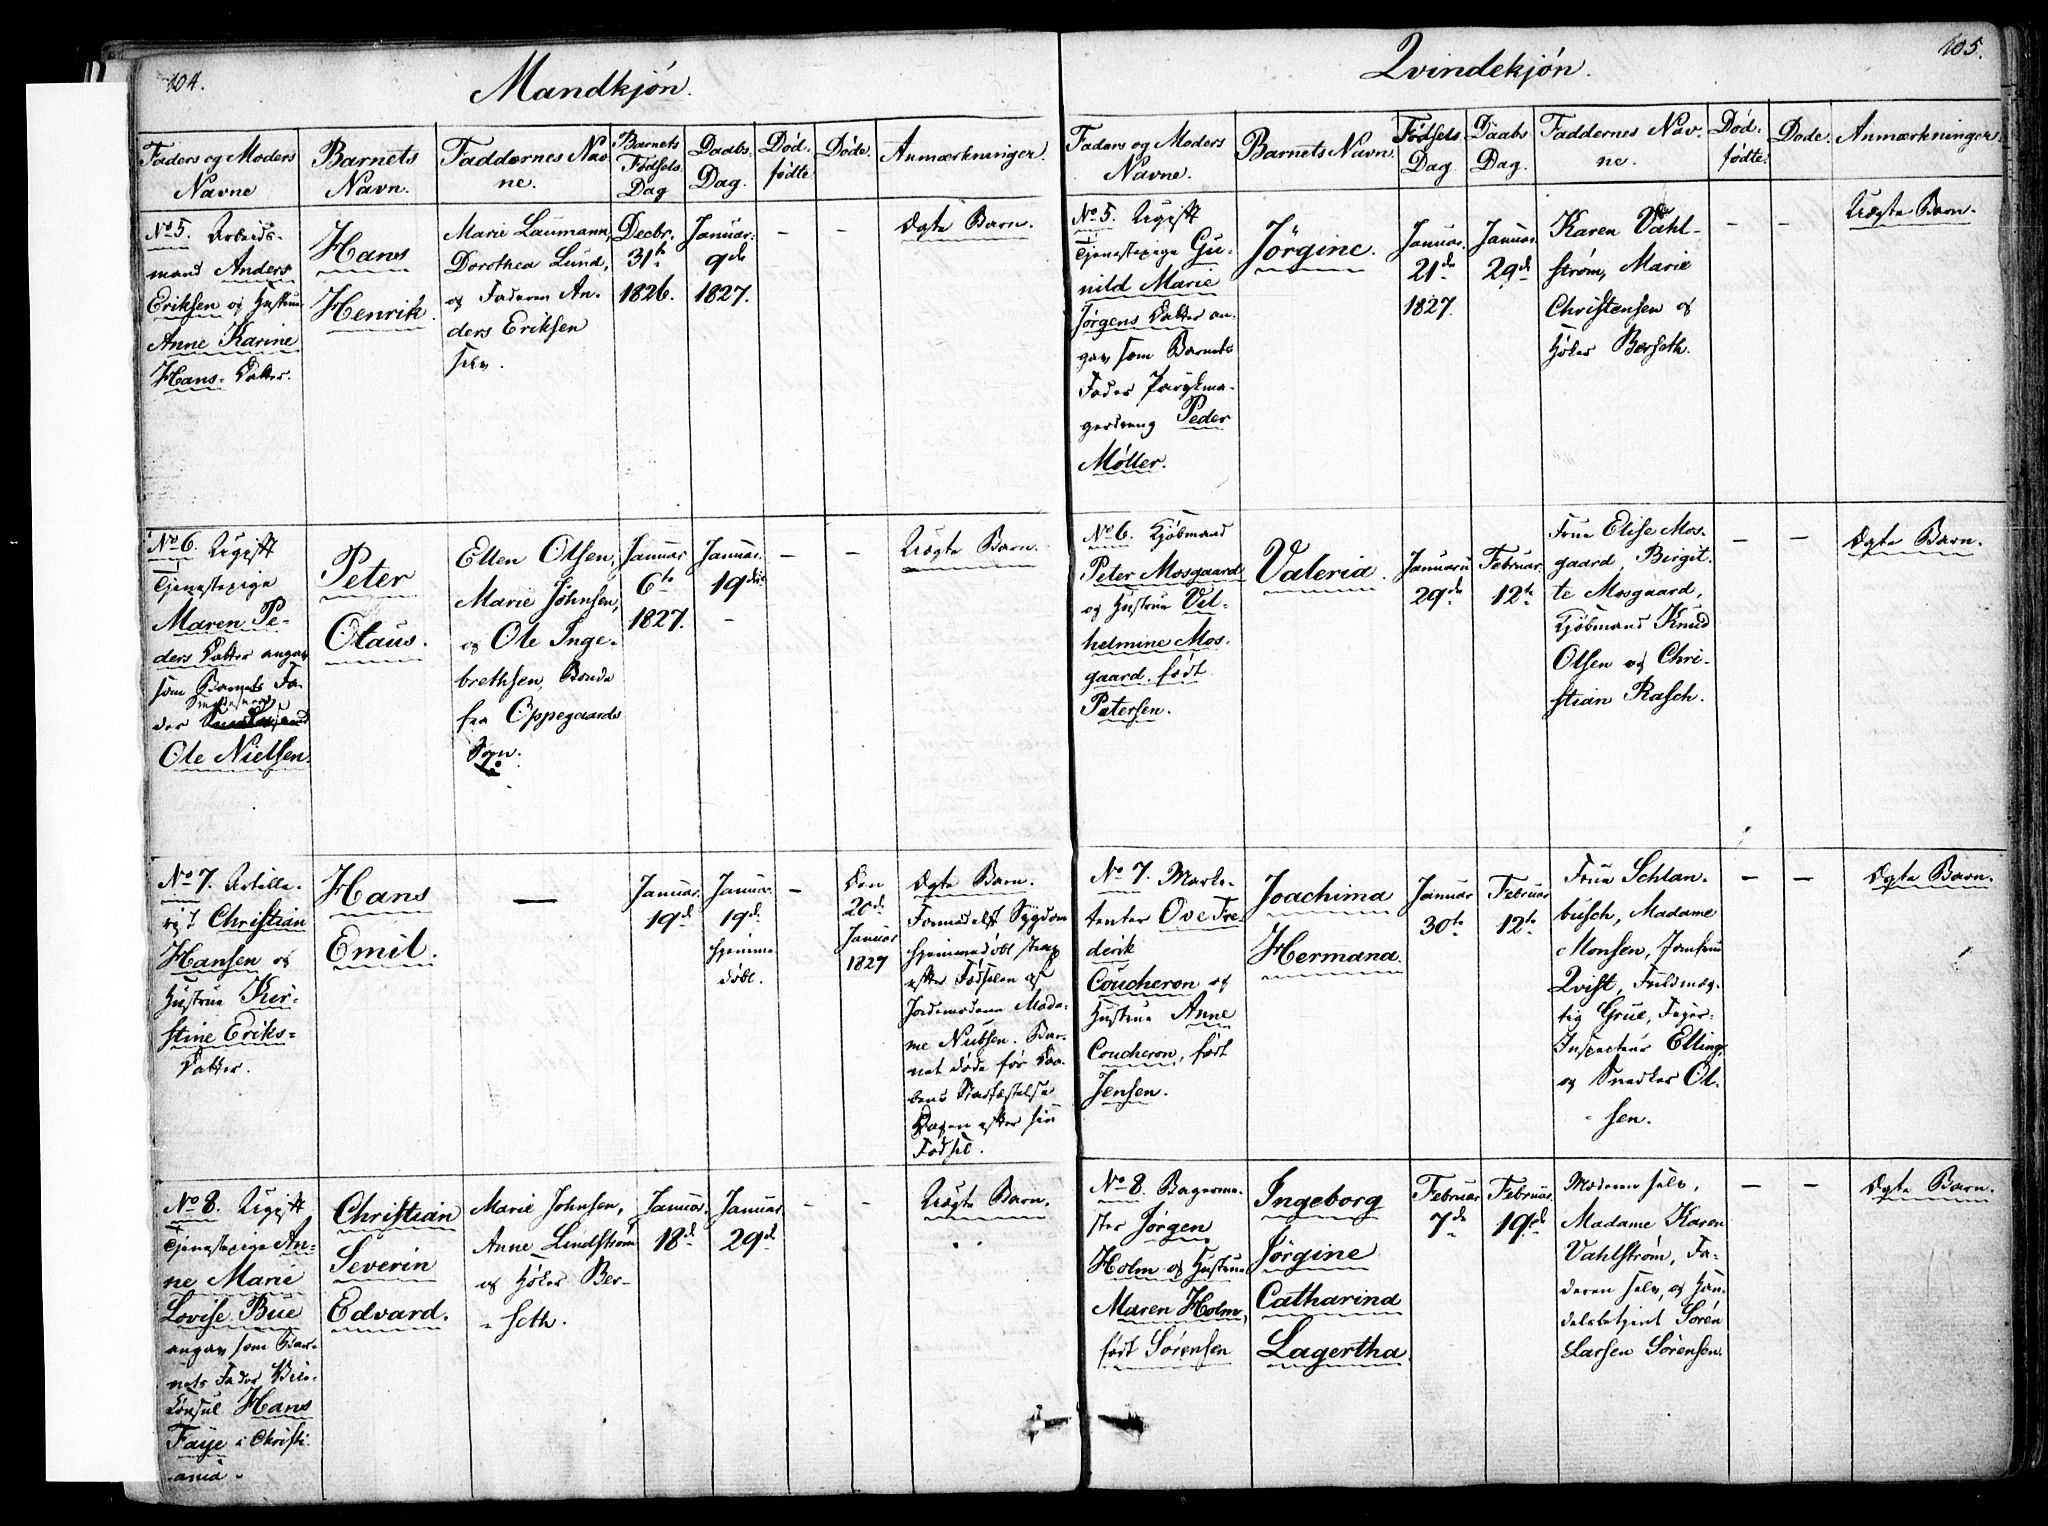 104.
Mandkjön.
Faders og Moders
Navne
Barnets
Navn.
Faddernes Nav
ne.
Barnets
Födsels
Dag
Daabs.
Dag.
Död.
födte
Döde.
Anmærkninger.
No 5. Arbeids-
mand Anders
Eriksen og Hustrue
Anne Karine
Hans- Datter.
Hans
Henrik.
Marie Laumann,
Dorothea Lund,
og Faderen An-
ders Eriksen
selv.
Decbr.
31te
1826.
Januar.
9de
1827.
–
–
Ægte Barn.
No 6. Ugift
Tjenestepige
Maren Pe-
ders Datter angav
som Barnets Fa-
der
Ole Nielsen.
Peter
Olaus.
Ellen Olsen,
Marie Johnsen,
og Ole Inge-
brethsen, Bonde
fra Oppegaards
Sogn.
Januar
6te
1827.
Januar.
19de
–
–
–
Uægte Barn.
No 7. Artille-
rist Christian
Hansen og
Hustrue Kir-
stine Eriks-
Datter.
Hans
Emil.
—
Januar.
19d.
Januar.
19d.
hjemme
döbt.
–
Den
20d.
Januar
1827
Ægte Barn.
Formedelst Sygdom
hjemmedöbt strax
efter Födselen af
Jordemoderen Mada-
me Nubsen. Bar-
net döde för Daa-
bens Stadfæstelse
Dagen efter sin
Födsel.
No 8. Ugift
Tjenestepige An-
ne Marie
Lovise Bue
angav som Bar-
nets Fader Vice-
Consul Hans
Faye i Christi-
ania.
Christian
Severin
Edvard.
Marie Johnsen,
Anne Lindström
og Höker Ber-
- seth.
Januar.
18d.
Januar
29d.
–
–
Uægte Barn.
105.
Qvindekjön.
Faders og Moders
Navne.
Barnets Navn.
Födsels
Dag.
Daabs
Dag.
Faddernes Nav-
ne.
Död-
födte.
Dode.
Anmærkninger.
No 5. Ugift
Tjenestepige Gu-
nild Marie
Jörgens Datter an-
gav som Barnets
Fader Parykma-
gersvend Peder
Möller.
Jörgine.
Januar.
21de
1827.
Januar.
29de
Karen Vahl-
ström, Marie
Christensen og
Höker Berseth.
–
–
Uægte Barn.
No 6. Kjöbmand
Peter Mosgaard
og Hustrue Vil-
helmine Mos-
gaard, födt
Petersen.
Valeria.
Januari
29de
Februar.
12te
Frue Elise Mos-
gaard, Birgit-
te Mosgaard,
Kjöbmand Knud
Olsen og Chri-
stian Rasch.
–
–
Ægte Barn.
No 7. Marke-
tenter Ove Fre-
derik
Coucheron og
Hustrue Anne
Coucheron, födt
Jensen.
Joachima
Hermana.
Januar
30te
Februar
12te
Frue Schlan-
busch, Madame
Monsen, Jomfrue
Qvist, Fuldmæg-
tig Grue, Tager-
Inspecteur Elling,
og Snedker Ol-
- sen.
–
–
Ægte Barn.
No 8. Bagerme-
ster Jörgen
Holm og Hustrue
Maren Holm,
födt Sörensen
Ingeborg
Jörgine
Catharina
Lagertha.
Februar
7de
Februar.
19de
Moderen selv,
Madame Karen
Vahlström, Fa-
deren selv, og Han-
delsbetjent Sören
Larsen Sörensen.
–
–
Ægte Barn.